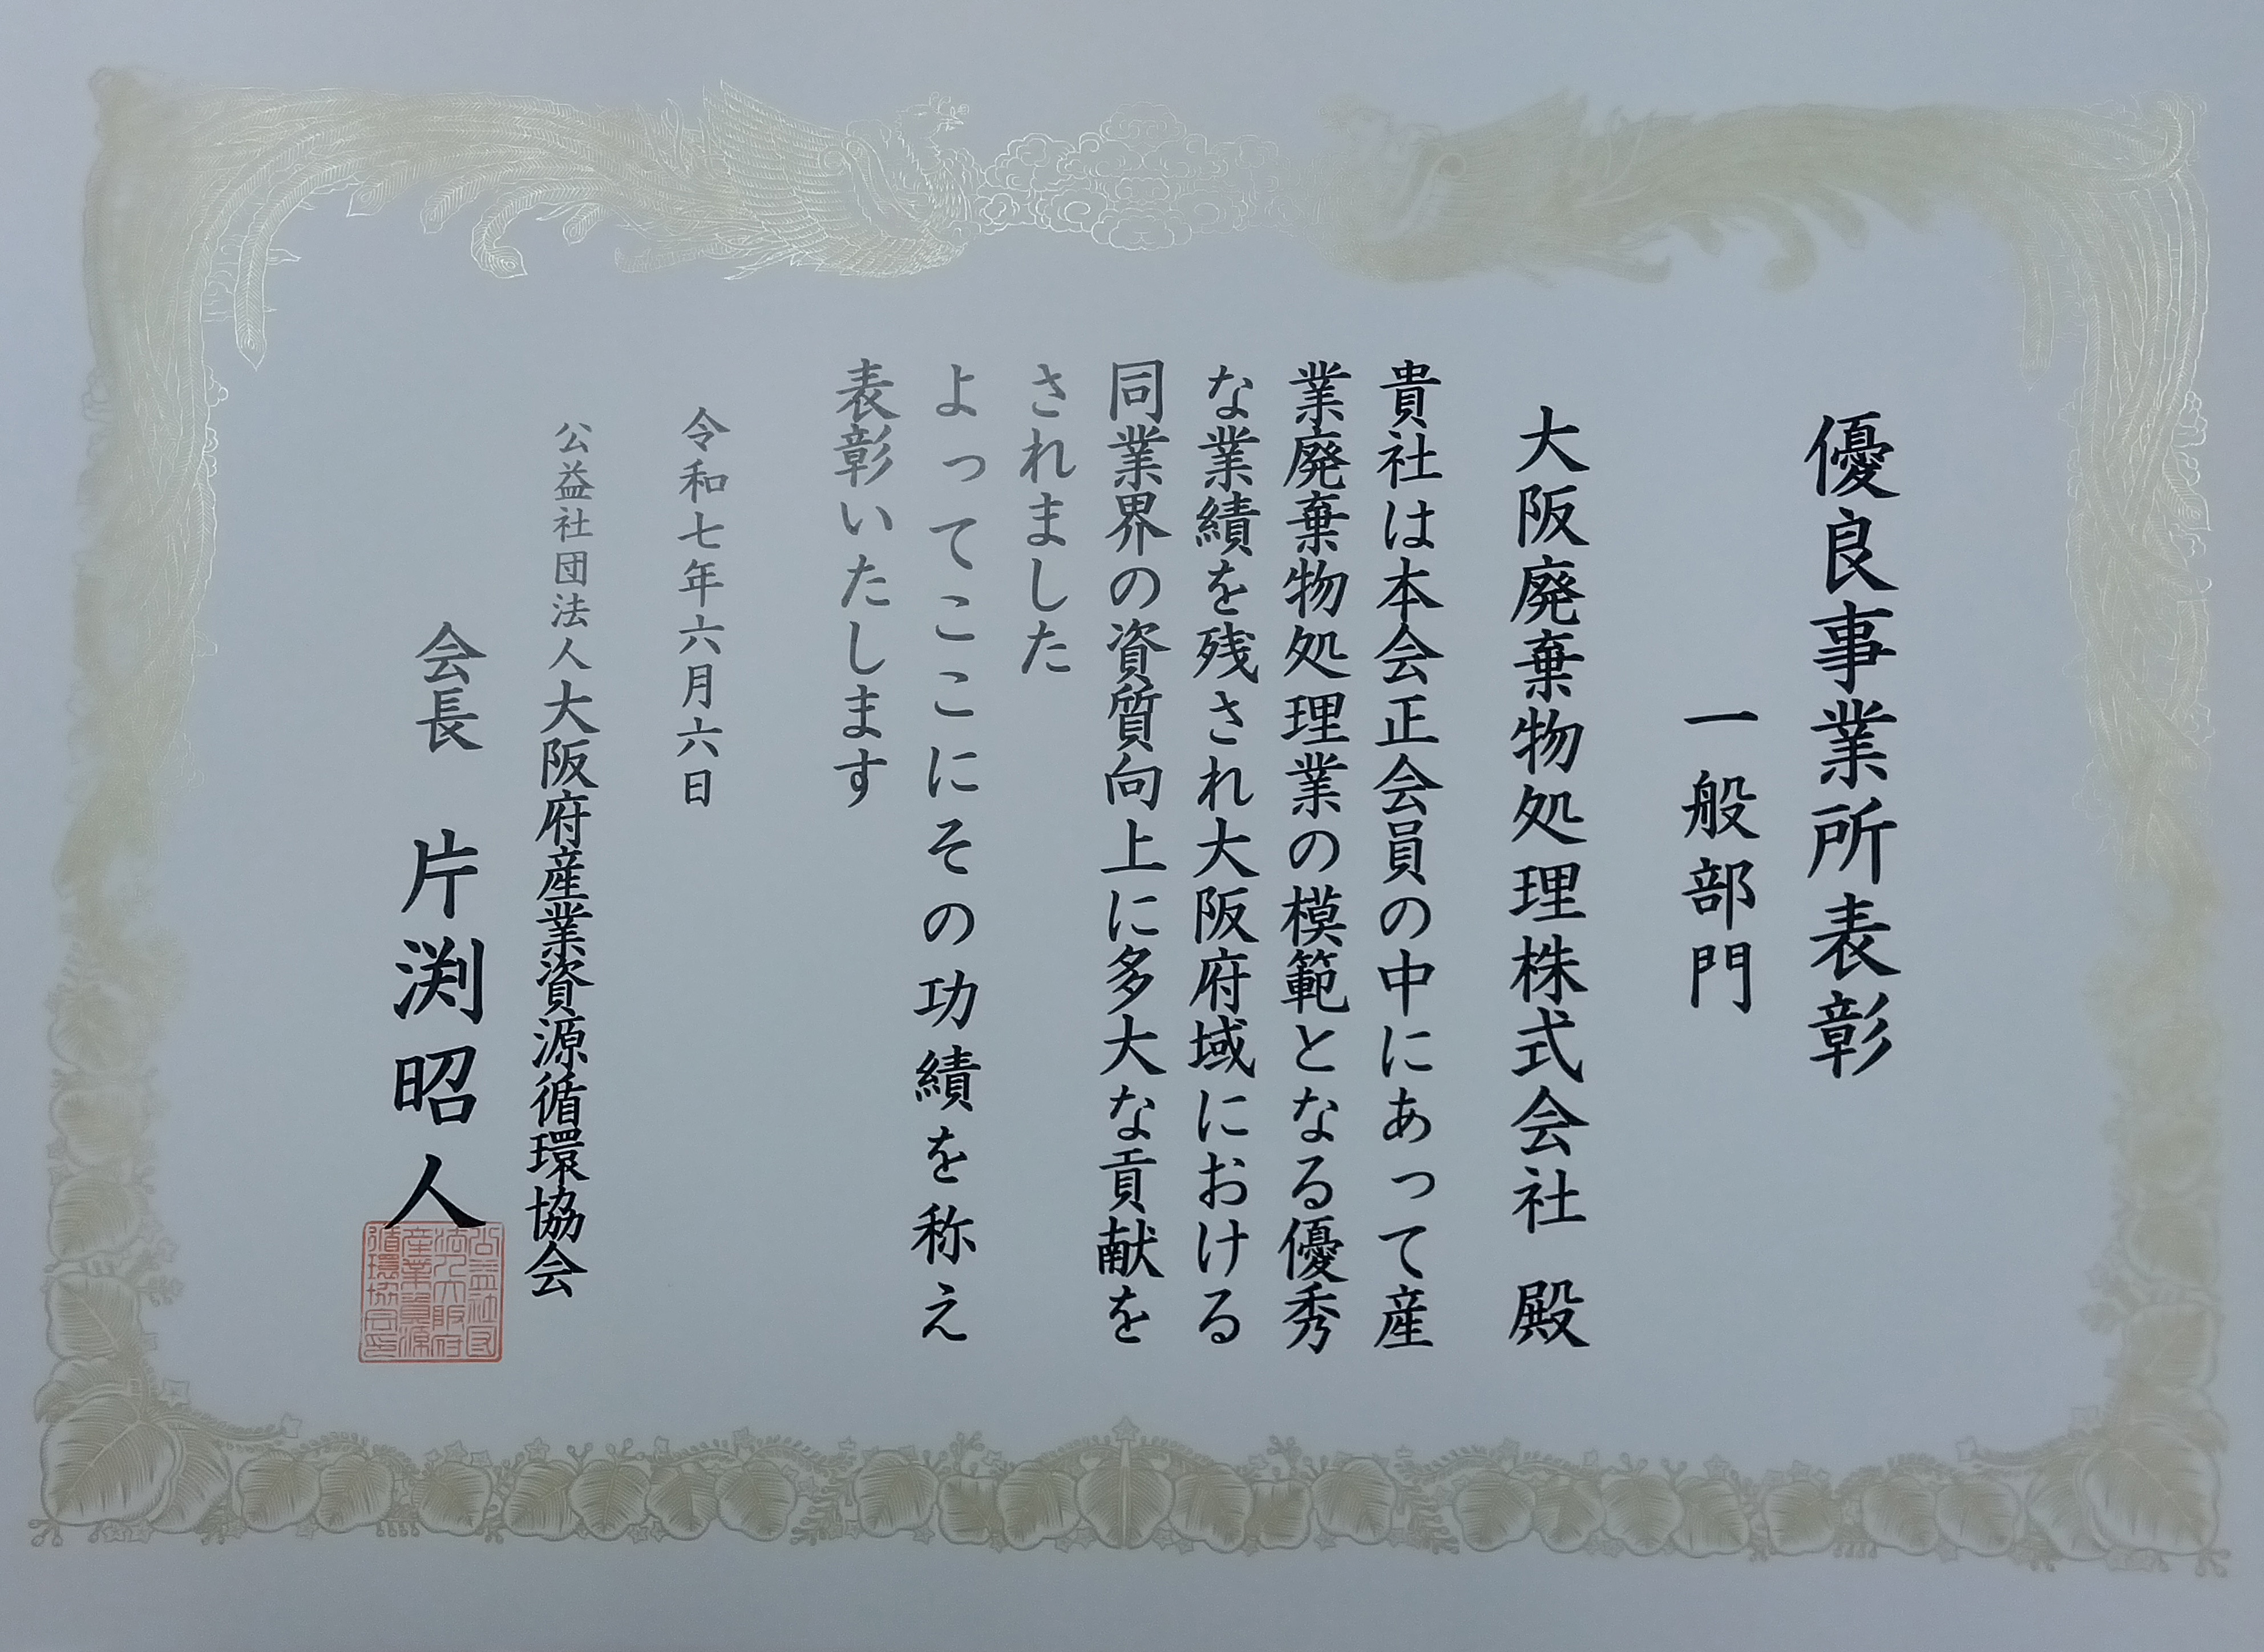 優良事業所表彰
一般部門
大阪廃棄物処理株式会社 殿
貴社は本会正会員の中にあって産
業廃棄物処理業の模範となる優秀
な業績を残され大阪府域における
同業界の資質向上に多大な貢献を
されました
よってここにその功績を称え
表彰いたします
令和七年六月六日
公益社団法人大阪府産業資源循環協会
会長 片渕昭人
公益社団
法人大阪府
産業資源
循環協会印